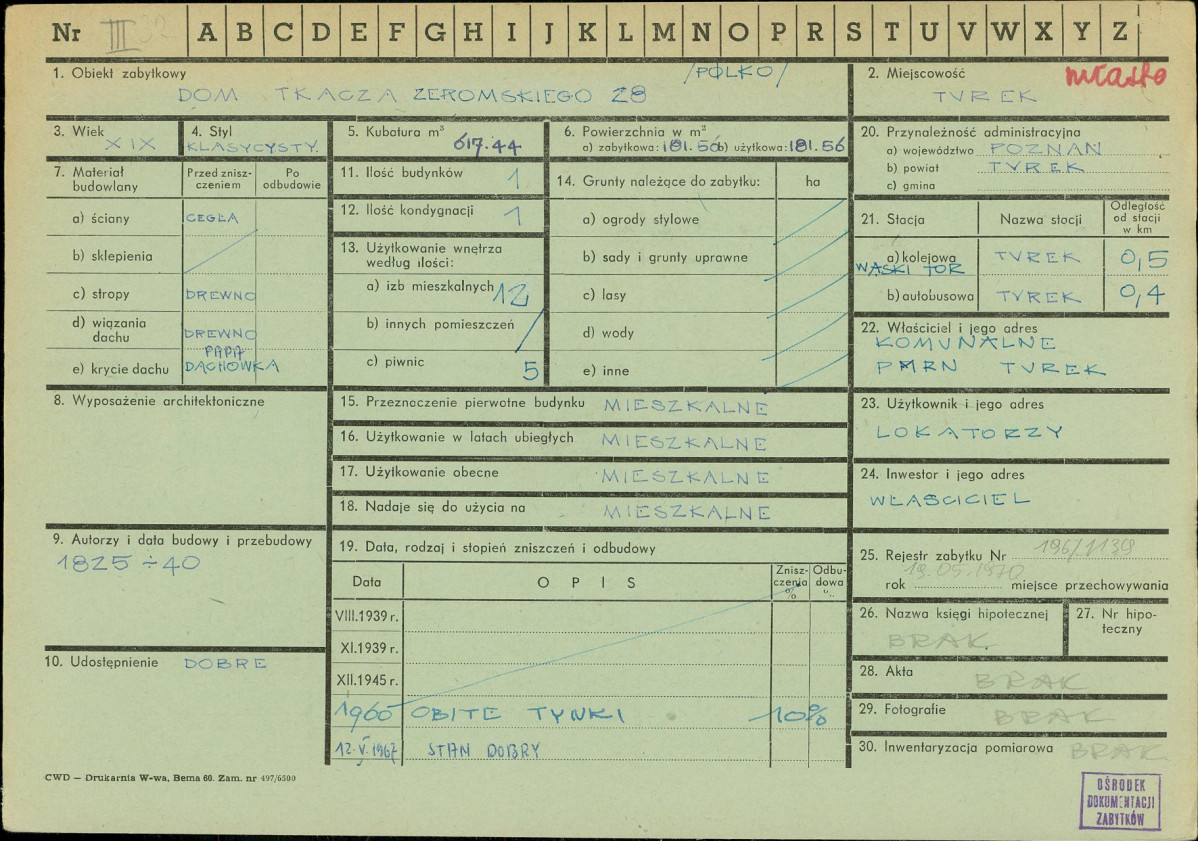 Nr III 32 A B C D E F G H I J K L M N O P R S T U V W X Y Z
1. Obiekt zabytkowy /POLKO/
DOM TKACZA ZEROMSKIEGO 28
2. Miejscowość miasto
TUREK
3. Wiek
XIX
4. Styl
KLASYCYSTY.
5. Kubatura m³
617.44
6. Powierzchnia w m²
a) zabytkowa: 181.56 b) użytkowa: 181.56
7. Materiał budowlany
Przed znisz-
czeniem
Po
odbudowie
a) ściany CEGŁA
b) sklepienia
c) stropy DREWNO
d) wiązania
dachu DREWNO
PAPA
e) krycie dachu DACHÓWKA
8. Wyposażenie architektoniczne
9. Autorzy i data budowy i przebudowy
1825 ÷ 40
10. Udostępnienie DOBRE
11. Ilość budynków 1
12. Ilość kondygnacji 1
13. Użytkowanie wnętrza
według ilości:
a) izb mieszkalnych 12
b) innych pomieszczeń
c) piwnic 5
14. Grunty należące do zabytku: ha
a) ogrody stylowe
b) sady i grunty uprawne
c) lasy
d) wody
e) inne
15. Przeznaczenie pierwotne budynku MIESZKALNE
16. Użytkowanie w latach ubiegłych MIESZKALNE
17. Użytkowanie obecne MIESZKALNE
18. Nadaje się do użycia na MIESZKALNE
19. Data, rodzaj i stopień zniszczeń i odbudowy
Data OPIS Znisz-
czenia
% Odbu-
dowa
%
VIII.1939 r.
XI.1939 r.
XII.1945 r.
1960 OBITE TYNKI 10%
12.V.1967 STAN DOBRY
20. Przynależność administracyjna
a) województwo POZNAŃ
b) powiat TUREK
c) gmina
21. Stacja Nazwa stacji Odległość
od stacji
w km
a) kolejowa TUREK 0,5
WĄSKI TOR
b) autobusowa TUREK 0,4
22. Właściciel i jego adres
KOMUNALNE
PMRN TUREK
23. Użytkownik i jego adres
LOKATORZY
24. Inwestor i jego adres
WŁAŚCICIEL
25. Rejestr zabytku Nr 196/1139
rok 19.05.1970 miejsce przechowywania
26. Nazwa księgi hipotecznej
BRAK
27. Nr hipo-
teczny
28. Akta BRAK
29. Fotografie BRAK
30. Inwentaryzacja pomiarowa BRAK
CWD — Drukarnia W-wa, Bema 60. Zam. nr 497/6500
OŚRODEK
DOKUMENTACJI
ZABYTKÓW